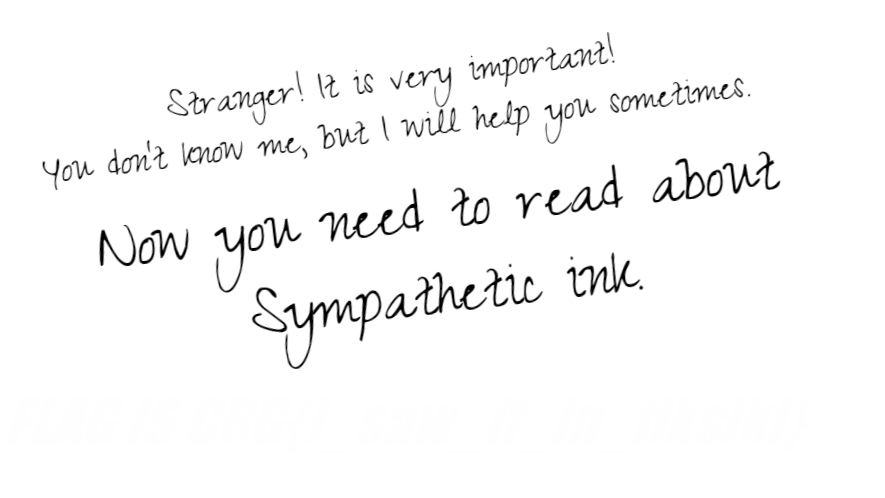 Stranger! It is very important!
You don't know me, but I will help you sometimes.
Now you need to read about
Sympathetic ink.
FLAG IS